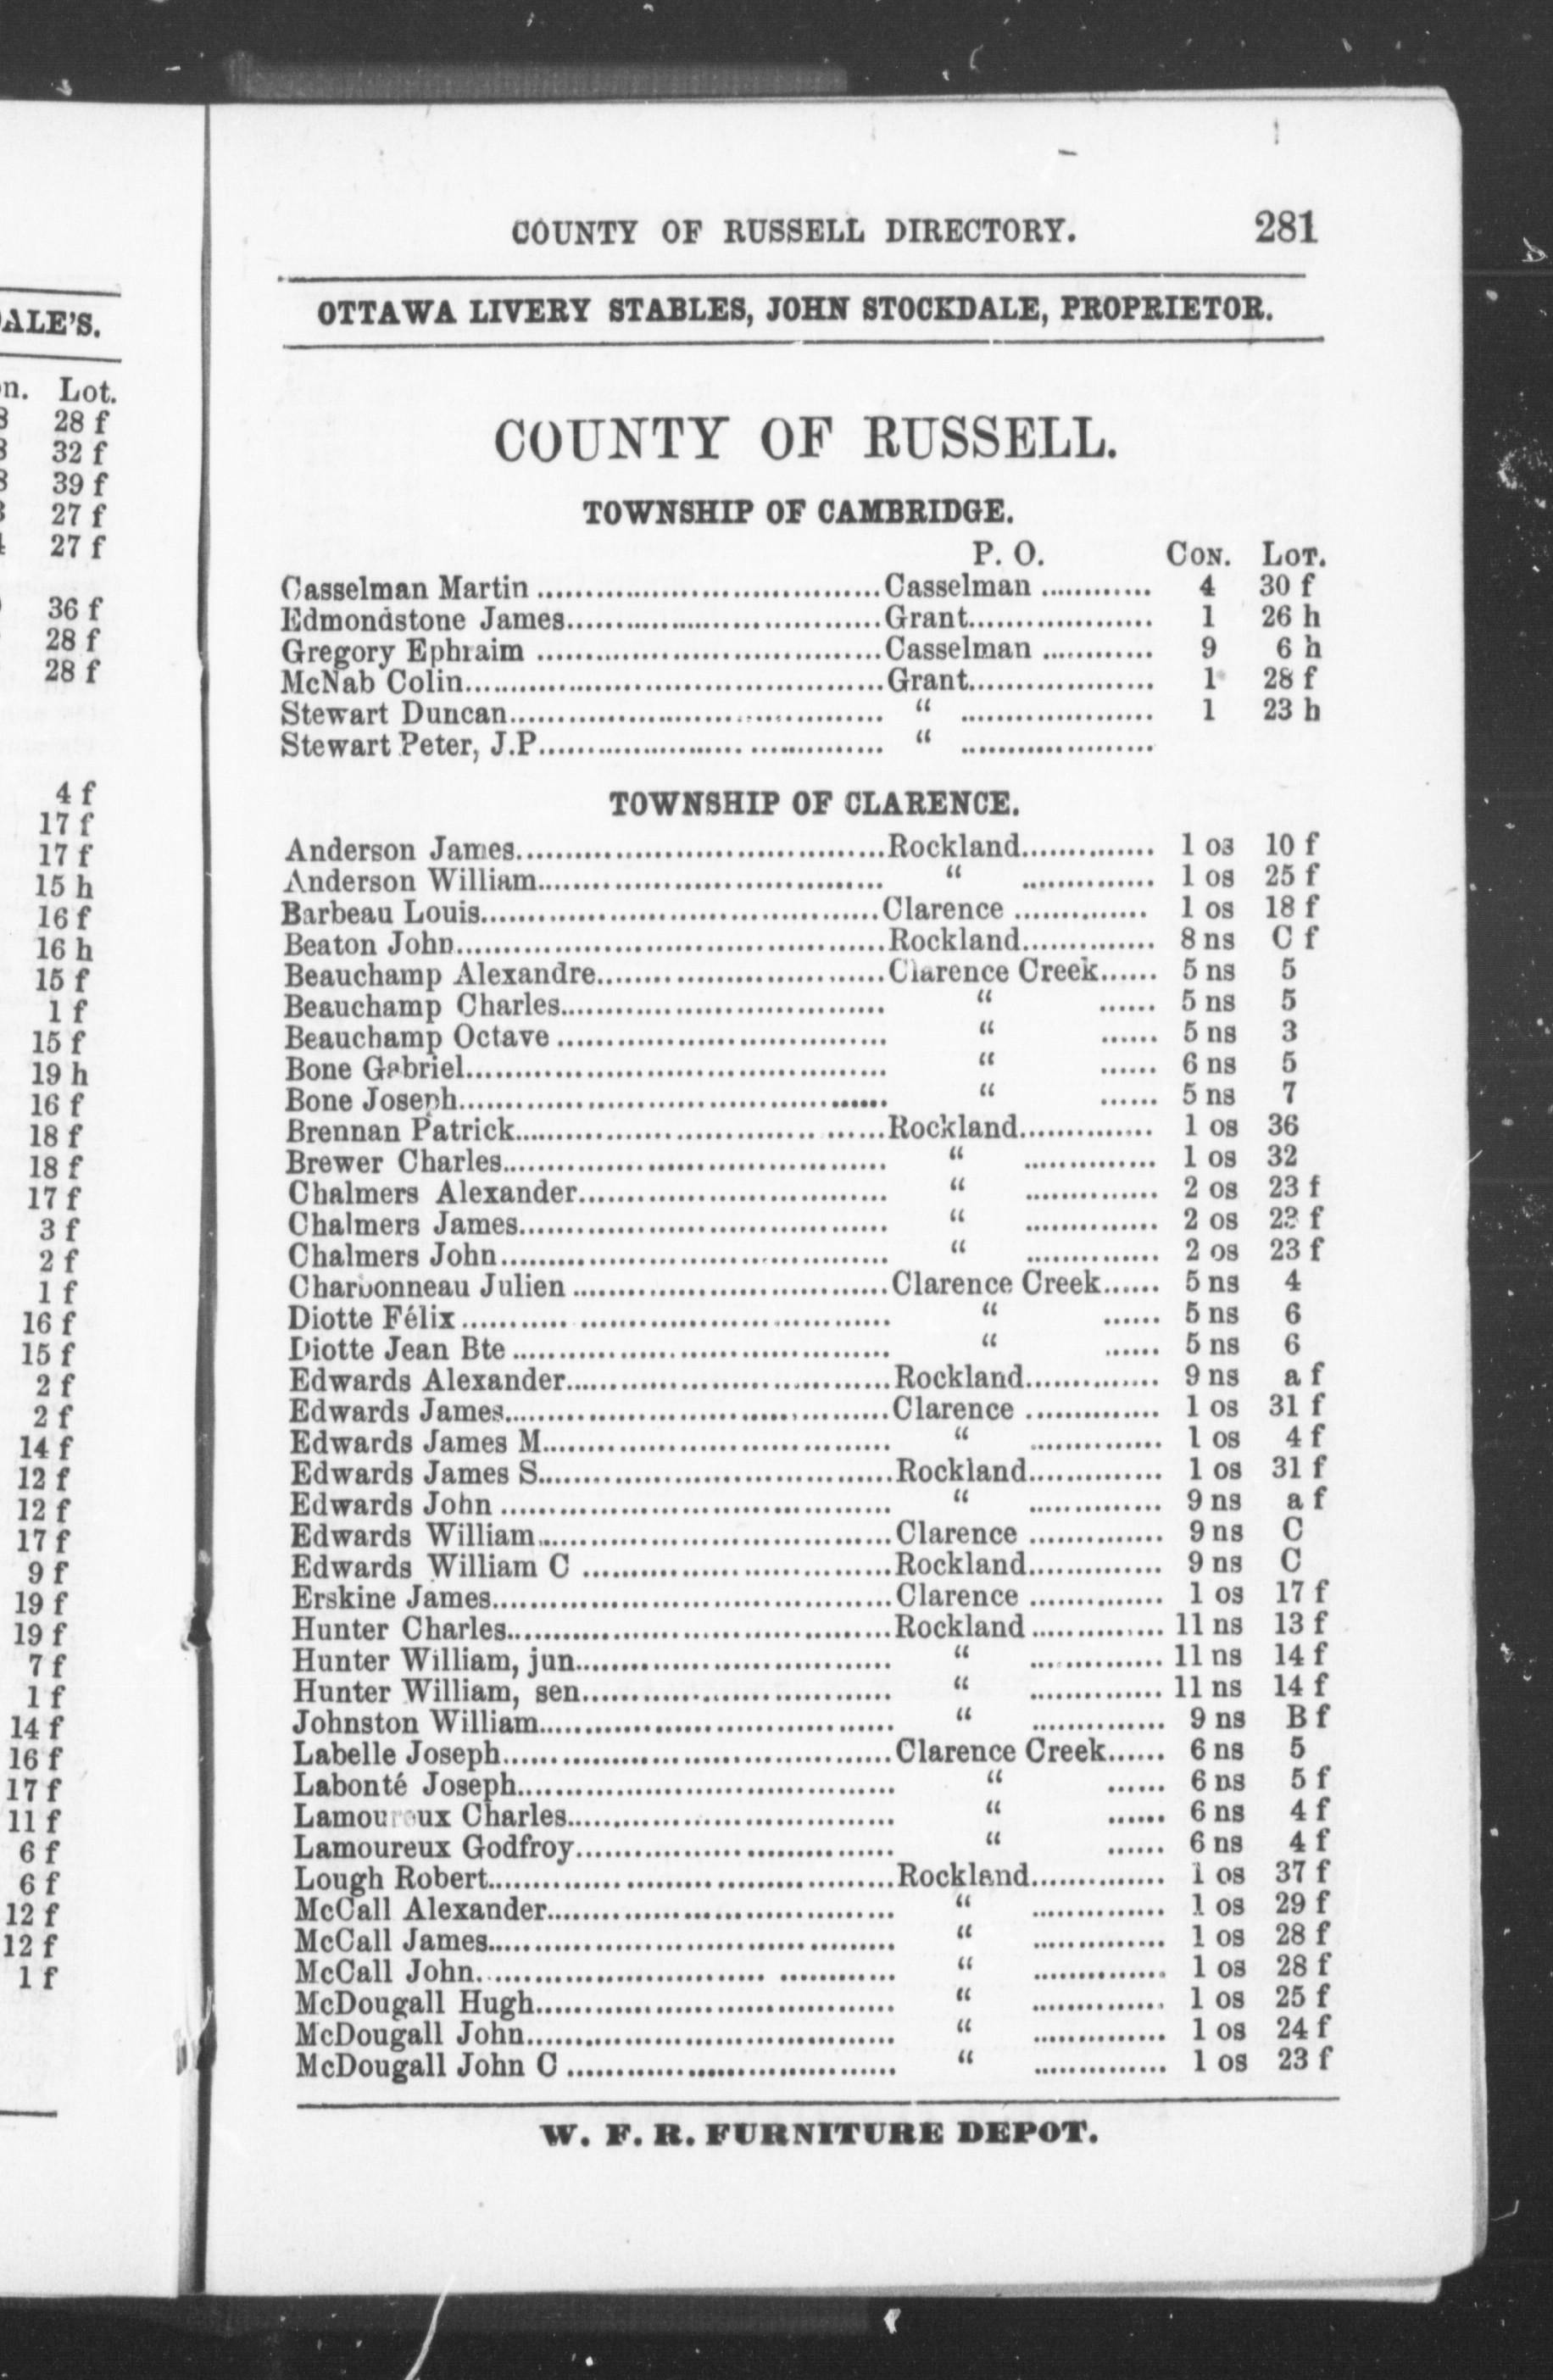 ALE'S.
n. Lot.
28 f
32 f
39 f
27 f
27 f
36 f
28 f
28 f
4 f
17 f
17 f
15 h
16 f
16 h
15 f
1 f
15 f
19 h
16 f
18 f
18 f
17 f
3 f
2 f
1 f
16 f
15 f
2 f
2 f
14 f
12 f
12 f
17 f
9 f
19 f
19 f
7 f
1 f
14 f
16 f
17 f
11 f
6 f
6 f
12 f
12 f
1 f
COUNTY OF RUSSELL DIRECTORY. 281
OTTAWA LIVERY STABLES, JOHN STOCKDALE, PROPRIETOR.
COUNTY OF RUSSELL.
TOWNSHIP OF CAMBRIDGE.
P. O. CON. LOT.
Casselman Martin ........ Casselman ........ 4 30 f
Edmondstone James ........ Grant ........ 1 26 h
Gregory Ephraim ........ Casselman ........ 9 6 h
McNab Colin ........ Grant ........ 1 28 f
Stewart Duncan ........ “ ........ 1 23 h
Stewart Peter, J.P ........ “ ........
TOWNSHIP OF CLARENCE.
Anderson James ........ Rockland ........ 1 os 10 f
Anderson William ........ “ ........ 1 os 25 f
Barbeau Louis ........ Clarence ........ 1 os 18 f
Beaton John ........ Rockland ........ 8 ns C f
Beauchamp Alexandre ........ Clarence Creek ...... 5 ns 5
Beauchamp Charles ........ “ ...... 5 ns 5
Beauchamp Octave ........ “ ...... 5 ns 3
Bone Gabriel ........ “ ...... 6 ns 5
Bone Joseph ........ “ ...... 5 ns 7
Brennan Patrick ........ Rockland ........ 1 os 36
Brewer Charles ........ “ ........ 1 os 32
Chalmers Alexander ........ “ ........ 2 os 23 f
Chalmers James ........ “ ........ 2 os 23 f
Chalmers John ........ “ ........ 2 os 23 f
Charbonneau Julien ........ Clarence Creek ...... 5 ns 4
Diotte Félix ........ “ ...... 5 ns 6
Diotte Jean Bte ........ “ ...... 5 ns 6
Edwards Alexander ........ Rockland ........ 9 ns a f
Edwards James ........ Clarence ........ 1 os 31 f
Edwards James M ........ “ ........ 1 os 4 f
Edwards James S ........ Rockland ........ 1 os 31 f
Edwards John ........ “ ........ 9 ns a f
Edwards William ........ Clarence ........ 9 ns C
Edwards William C ........ Rockland ........ 9 ns C
Erskine James ........ Clarence ........ 1 os 17 f
Hunter Charles ........ Rockland ........ 11 ns 13 f
Hunter William, jun ........ “ ........ 11 ns 14 f
Hunter William, sen ........ “ ........ 11 ns 14 f
Johnston William ........ “ ........ 9 ns B f
Labelle Joseph ........ Clarence Creek ...... 6 ns 5
Labonté Joseph ........ “ ...... 6 ns 5 f
Lamoureux Charles ........ “ ...... 6 ns 4 f
Lamoureux Godfroy ........ “ ...... 6 ns 4 f
Lough Robert ........ Rockland ........ 1 os 37 f
McCall Alexander ........ “ ........ 1 os 29 f
McCall James ........ “ ........ 1 os 28 f
McCall John ........ “ ........ 1 os 28 f
McDougall Hugh ........ “ ........ 1 os 25 f
McDougall John ........ “ ........ 1 os 24 f
McDougall John C ........ “ ........ 1 os 23 f
W. F. R. FURNITURE DEPOT.